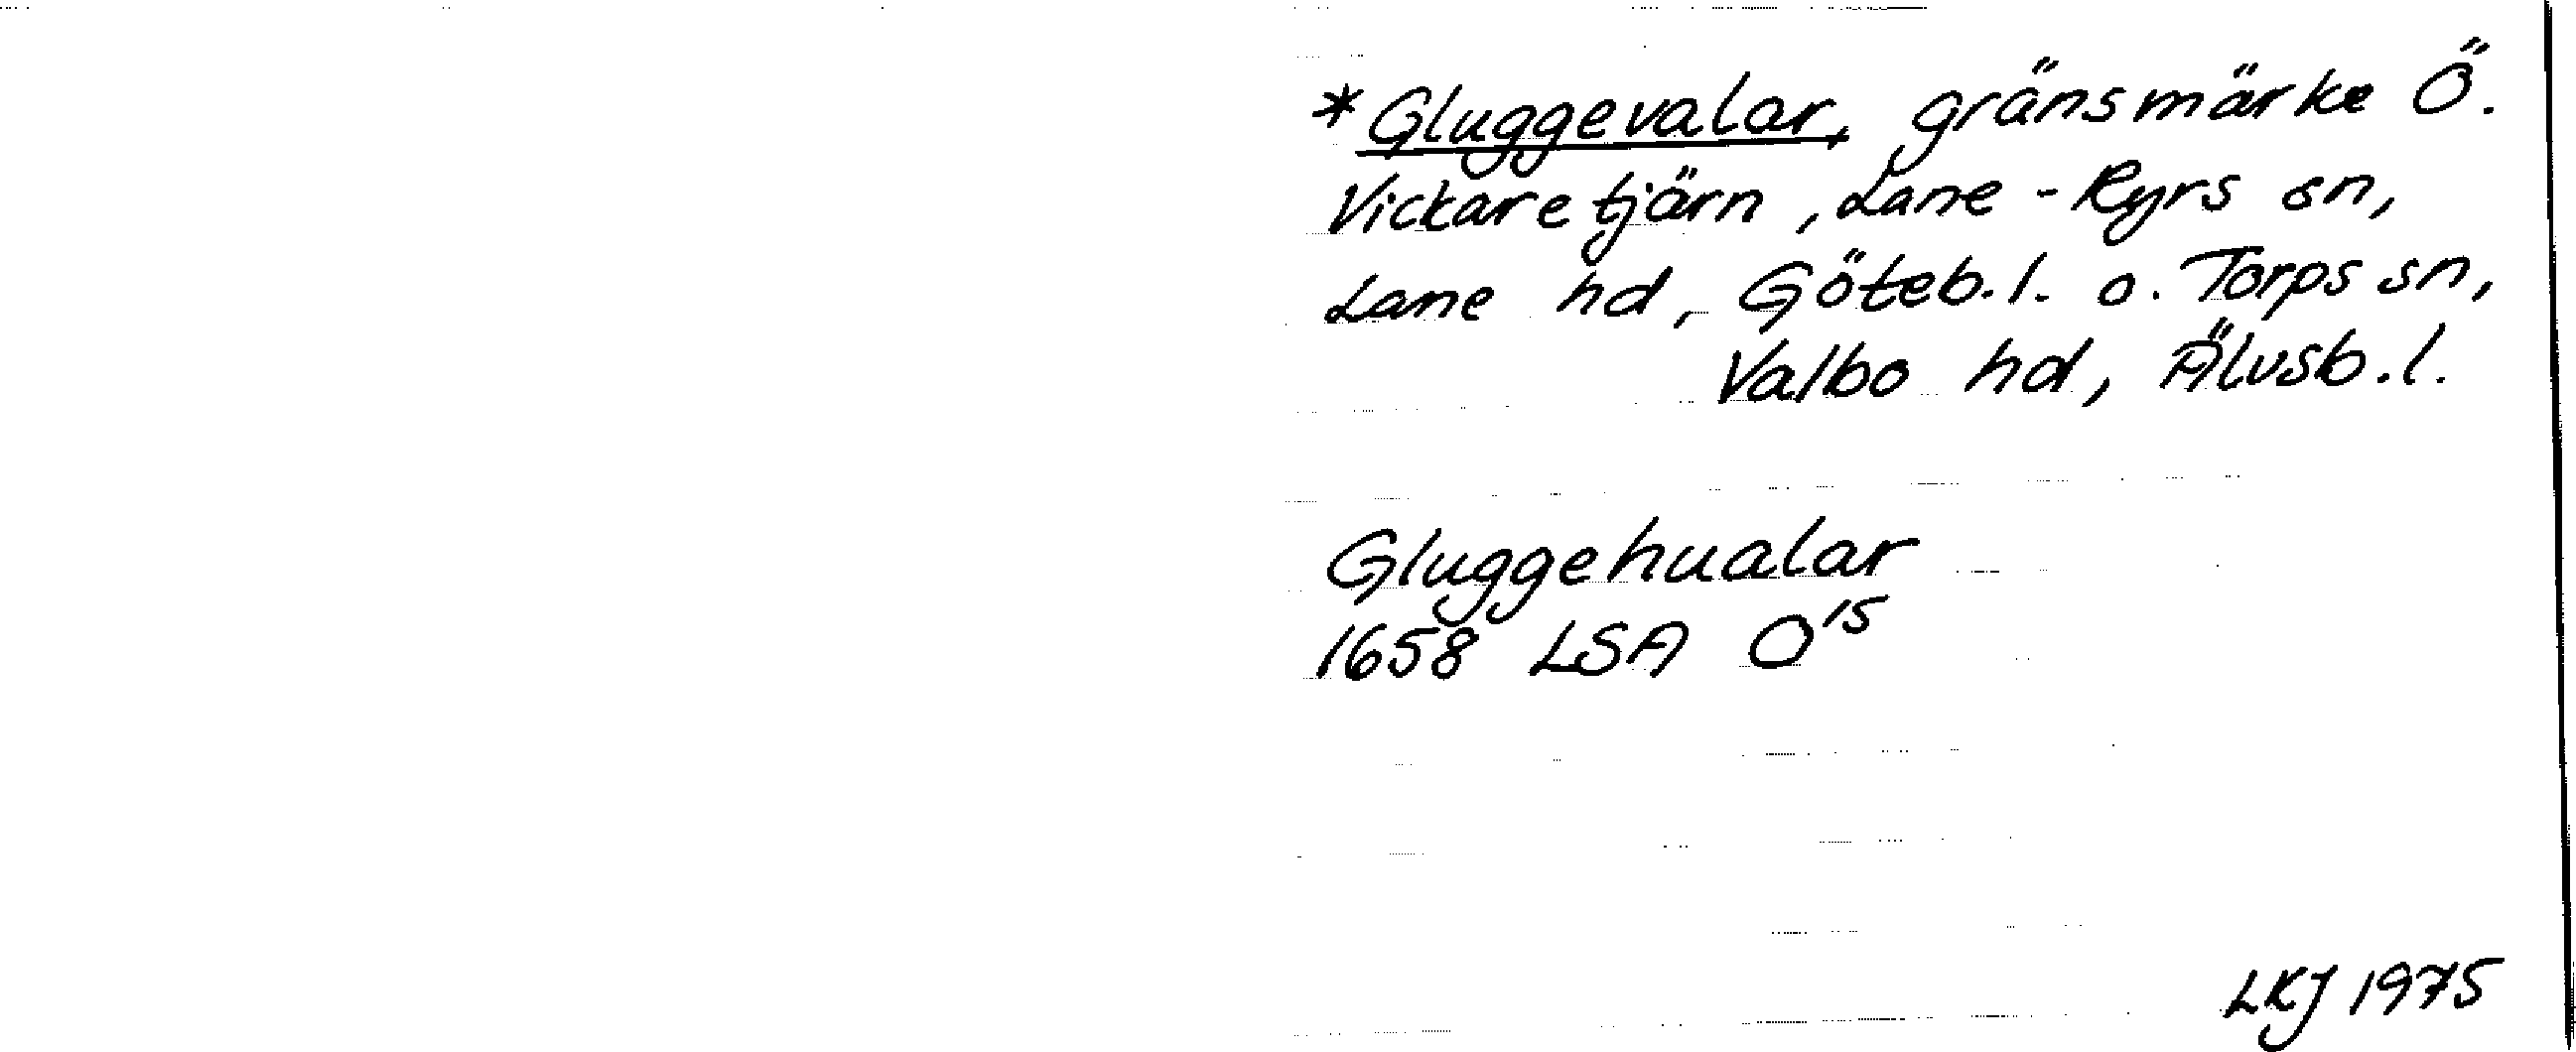 *Gluggevalar, gränsmärke Ö.
Vickaretjärn, Lane-Ryrs sn,
Lane hd, Göteb.l. o. Torps sn,
Valbo hd, Älvsb.l.
Gluggehualar
1658 LSA O¹⁵
LKJ 1975